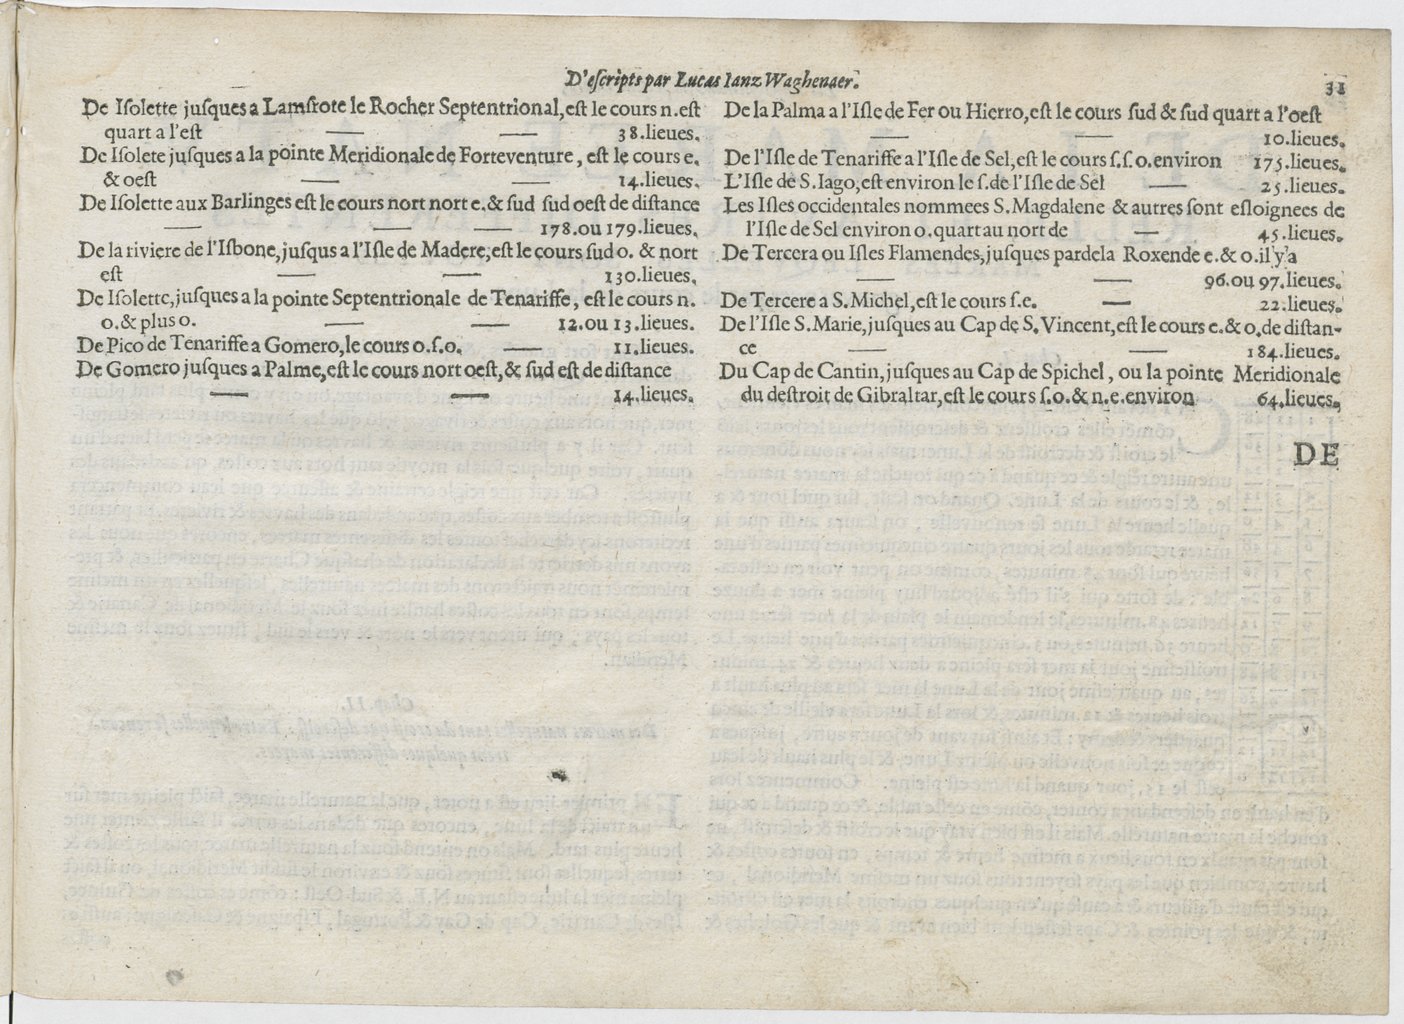 D'eſcripts par Lucas Ianz Waghenaer.
31
De Iſolette juſques a Lamſrote le Rocher Septentrional, eſt le cours n. eſt
quart a l'eſt — — 38. lieues.
De Iſolete juſques a la pointe Meridionale de Forteventure, eſt le cours e.
& oeſt — — 14. lieues.
De Iſolette aux Barlinges eſt le cours nort nort e. & ſud ſud oeſt de diſtance
— — — 178. ou 179. lieues.
De la riviere de l'Iſbone, juſqus a l'Iſle de Madere, eſt le cours ſud o. & nort
eſt — — 130. lieues.
De Iſolette, juſques a la pointe Septentrionale de Tenariffe, eſt le cours n.
o. & plus o. — — 12. ou 13. lieues.
De Pico de Tenariffe a Gomero, le cours o. ſ. o. — 11. lieues.
De Gomero juſques a Palme, eſt le cours nort oeſt, & ſud eſt de diſtance
— — 14. lieues.
De la Palma a l'Iſle de Fer ou Hierro, eſt le cours ſud & ſud quart a l'oeſt
— — 10. lieues.
De l'Iſle de Tenariffe a l'Iſle de Sel, eſt le cours ſ. ſ. o. environ 175. lieues.
L'Iſle de S. Iago, eſt environ le ſ. de l'Iſle de Sel — 25. lieues.
Les Iſles occidentales nommees S. Magdalene & autres ſont eſloignees de
l'Iſle de Sel environ o. quart au nort de — 45. lieues.
De Tercera ou Iſles Flamendes, juſques pardela Roxende e. & o. il y'a
— — 96. ou 97. lieues.
De Tercere a S. Michel, eſt le cours ſ. e. — 22. lieues.
De l'Iſle S. Marie, juſques au Cap de S. Vincent, eſt le cours e. & o. de diſtan-
ce — — 184. lieues.
Du Cap de Cantin, juſques au Cap de Spichel, ou la pointe Meridionale
du deſtroit de Gibraltar, eſt le cours ſ. o. & n. e. environ 64. lieues,
DE